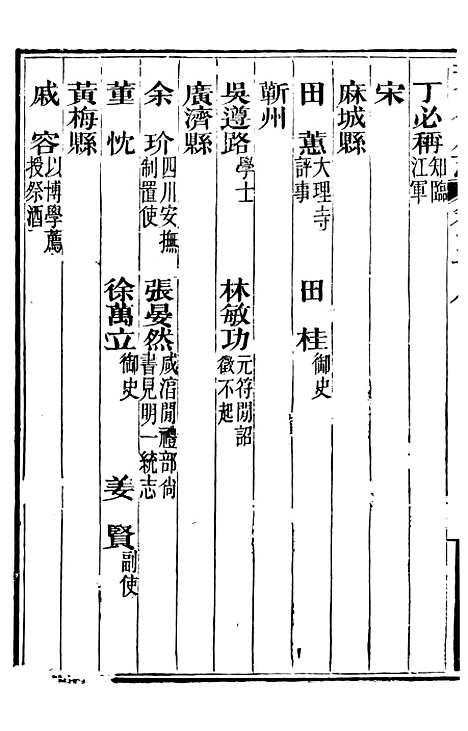 丁必稱知臨江軍
宋
麻城縣
田薰大理寺評事 田桂御史
蘄州
吳遵路學士 林敏功元符閒詔徵不起
廣濟縣
余玠四川安撫制置使 張晏然咸淯閒禮部尙書見明一統志
董忱 徐萬立御史 姜賢副使
黃梅縣
戚容以博學薦授祭酒